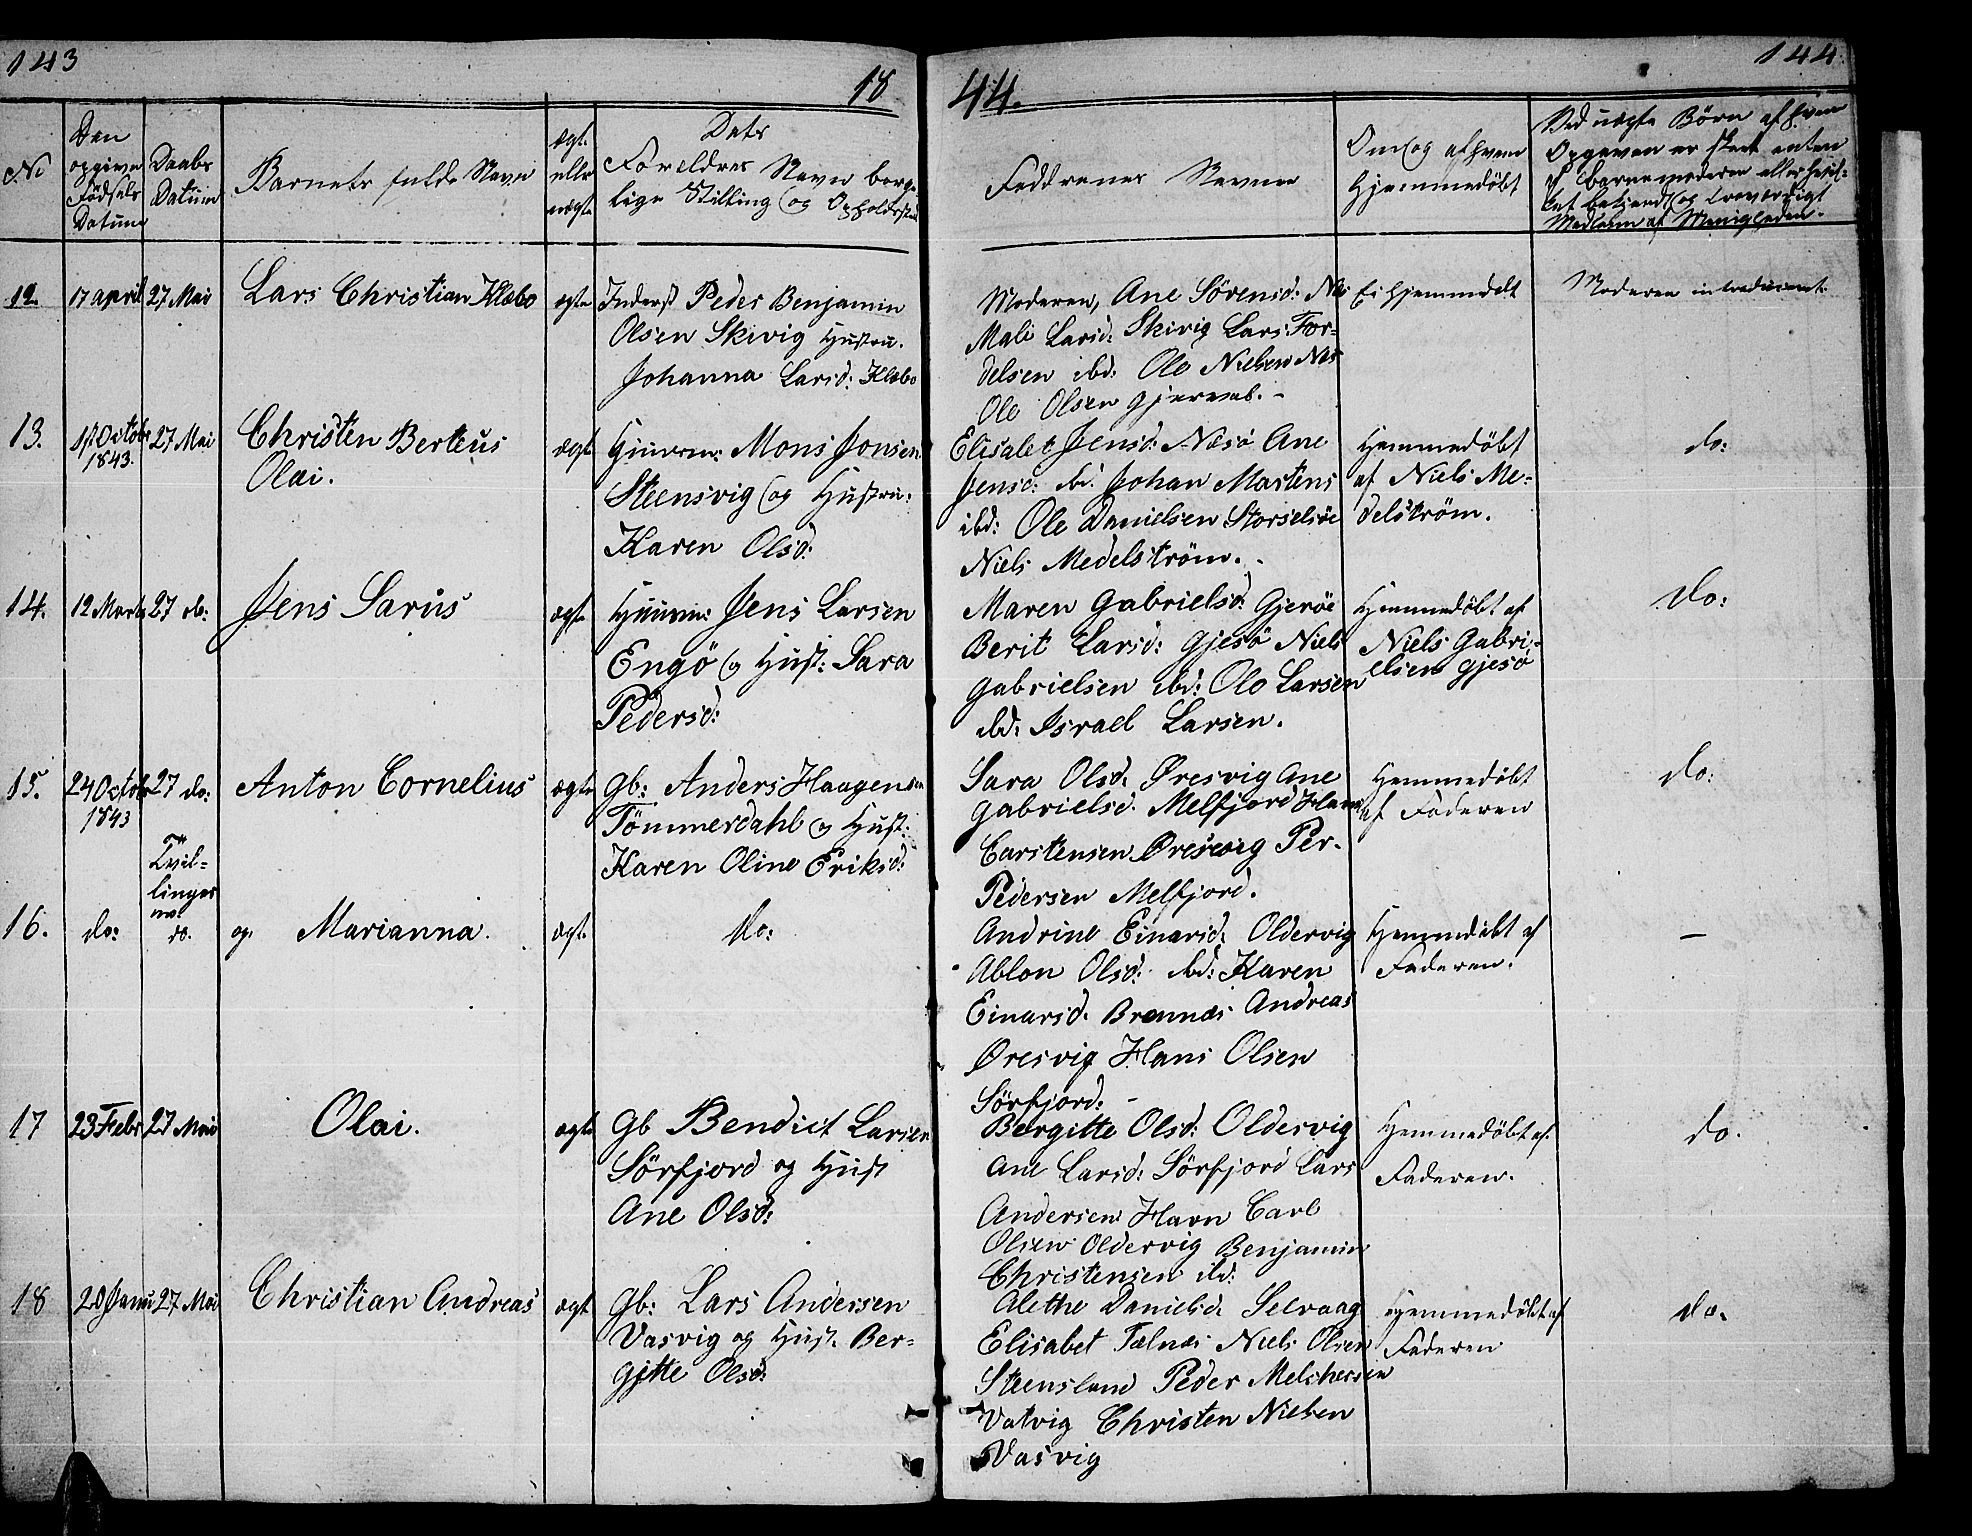 143
18
44.
144
No
Den opgivne Fødsels Datum
Daabs Datum
Barnets fulde Navn
ægte eller uægte
Dets Foreldres Navn borgerlige Stilling og Opholdssted
Faddrenes Navne
Om og af hvem Hjemmedøbt
Ved uægte Børn af hvem Opgaven er skeet enten af Barnemoderen eller
bekiendt og troværdigt
Medlem af Menigheden.
12. 17 april 27 Mai Lars Christian Klæbo ægte Inderst Peder Benjamin
Olsen Skivig Hustru.
Johanna Larsd: Klæbo
Moderen, Ane Sörensd: Næs
Mali Larsd: Skivig Lars Tor-
delsen ibd: Ole Nielsen Næs
Ole Olsen
Ei hjemmedøbt
Moderen introduceret.
13. Octobr 1843. 27 Mai Christen Berteus
Olai.
ægte Huusm: Mons Jonsen
Steensvig og Hustru:
Karen Olsd:
Elisabet Jensd: Næsö Ane
Jensd: ibd. Johan Martens
ibd: Ole Danielsen Storselsöe
Niels Medelström.
Hemmedöbt
af Niels Me-
delström.
do:
14. 12 Marts 27 do: Jens Sarus
ægte Huusm: Jens Larsen
Engö og Hust: Sara
Pedersd:
Maren Gabrielsd: Gjeröe
Berit Larsd: Gjesö Niels
Gabrielsen ibd: Ole Larsen
ibd: Israel Larsen.
Hemmedöbt af
Niels Gabri-
elsen Gjesö
do:
15. 24 Octobr 1843 27 do: Anton Cornelius
ægte Gb: Anders Haagensen
Tömmerdahl og Hust:
Karen Oline Eriksd:
Sara Olsd: Øresvig Ane
Gabrielsd. Melfjord Hans
Carstensen Øresvig Per-
Pedersen Melfjord.
Hemmedöbt
af Faderen
do:
Tvil-
linger
16. do: do. og. Marianna.
ægt. do:
Andrine Einarsd: Oldervig
Ablon Olsd: ibd: Karen
Einarsd. Brennæs Andreas
Øresvig Hans Olsen
Sörfjord:
Hemmedöbt af
Faderen.
—
17 23 Febr 27 Mai Olai.
ægte Gb Bendict Larsen
Sörfjord og Hust
Ane Olsd:
Bergitte Olsd: Oldervig
Ane Larsd: Sörfjord Lars
Andersen Havn Carl
Olsen Oldervig Benjamin
Christensen ibd:
Hemmedöbt af
Faderen.
do.
18 20 Janu 27 Mai Christian Andreas
ægt. Gb: Lars Andersen
Vasvig og Hust. Ber-
gjtte Olsd:
Alethe Danielsd. Selvaag
Elisabet Tælnæs Niels Olsen
Steensland Peder Melchersen
Vatvig Christen Nielsen
Vasvig
Hjemmedöbt af
Faderen
do.